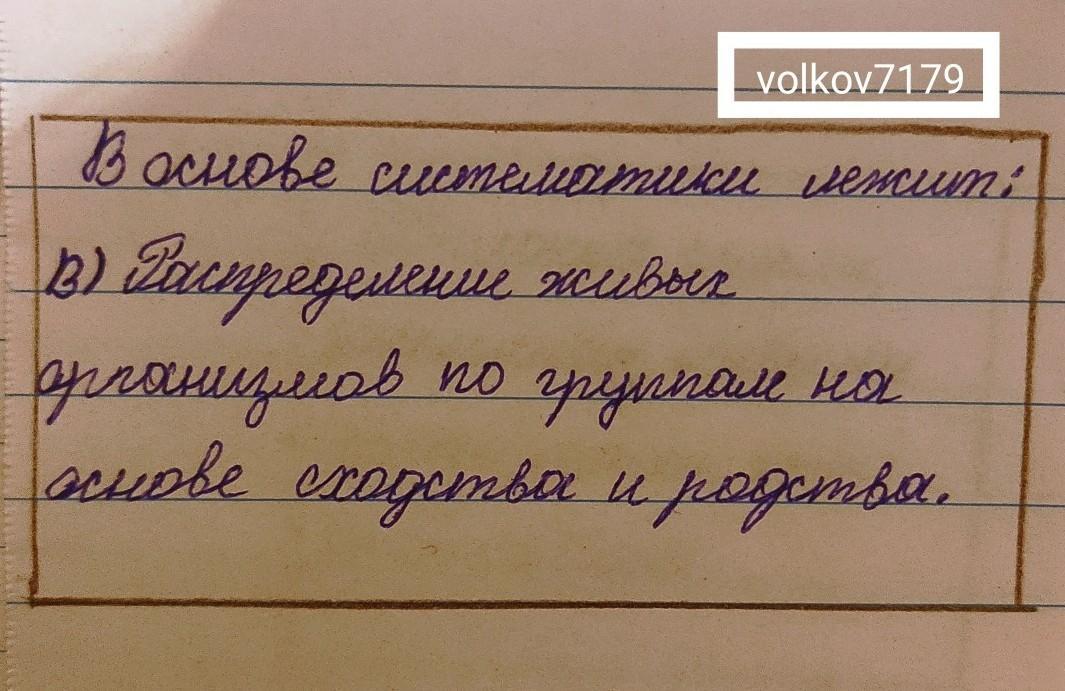 volkov7179
В основе систематики лежит:
В) Распределение живых
организмов по группам на
основе сходства и родства.